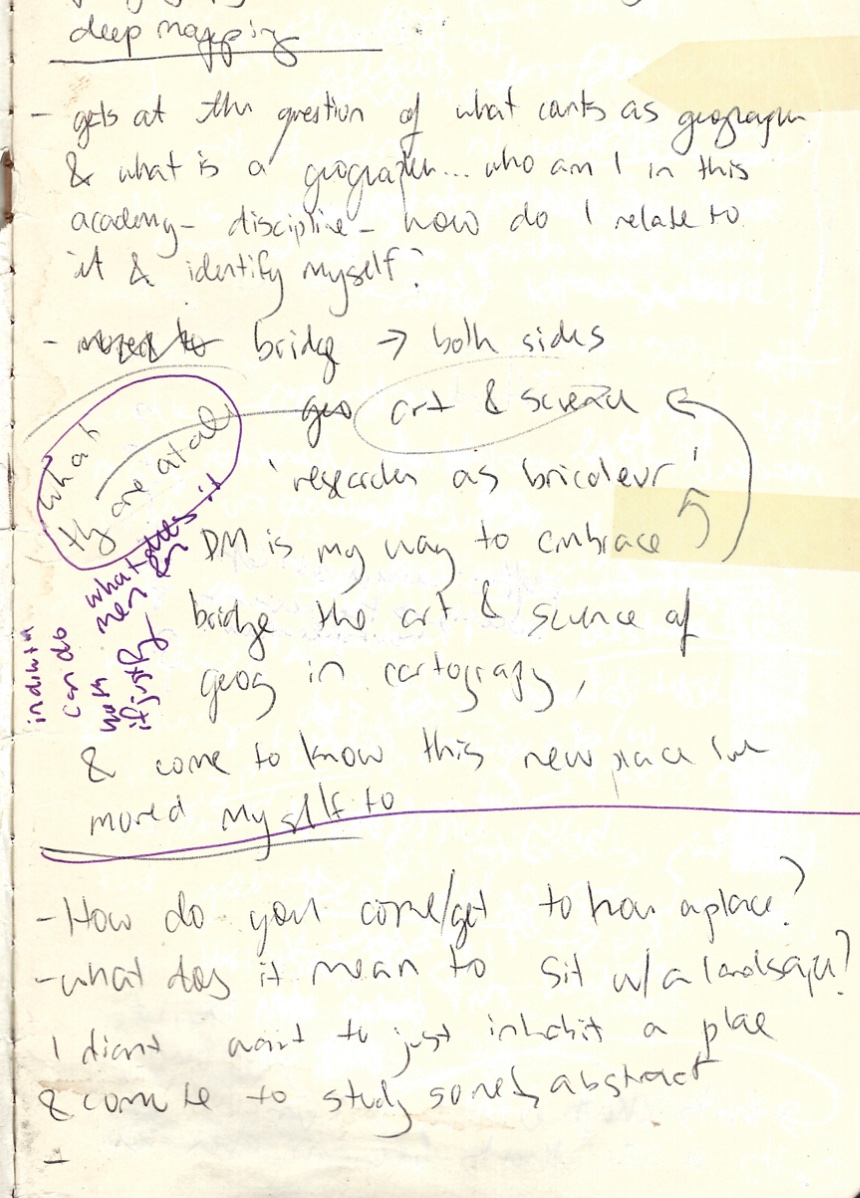 deep mapping
- gets at the question of what counts as geography
& what is a geographer... who am I in this
academy - discipline - how do I relate to
it & identify myself?
- bridge → both sides
geo art & science
'researcher as bricoleur'
DM is my way to embrace
bridge the art & science of
geog in cartography,
& come to know this new place I've
moved myself to
what
they are at
what does it
mean
can do
with
it justify
- How do you come/get to know a place?
- what does it mean to sit w/ a landscape?
I didn't want to just inhabit a place
& commute to study some abstract
-